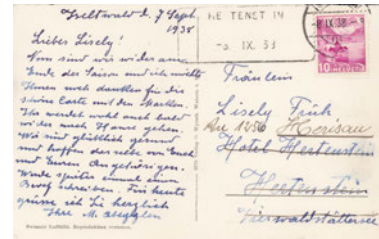 Iseltwald d. 7 Sept.
1938
Liebes Lisely!
Nun sind wir wieder am
Ende der Saison und ich möchte
Ihnen noch danken für die
schöne Carte mit den Marken.
Ihr werdet wohl auch bald
wieder nach Hause gehen.
Wir sind glücklich gesund
und hoffen dasselbe von Euch
und Euren Angehörigen.
Werde später einmal einen
Brief schreiben. Für heute
grüsse ich Sie herzlich
Ihre M. Abegglen
HE TENET IN
-8. IX. 38
8 IX 38
10 HELVETIA
Fräulein
Lisely Früh
Herisau
Hotel Hertenstein
Hertenstein
Vierwaldstättersee